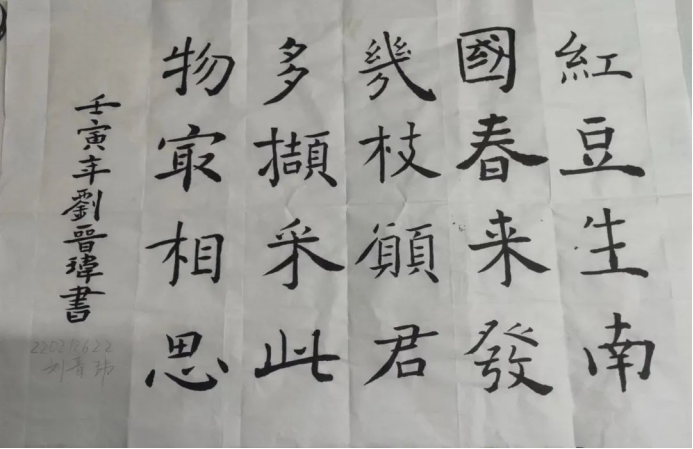 紅豆生南
國春来發
幾枝願君
多擷采此
物㝡相思
壬寅年劉晋瑋書
刘晋玮